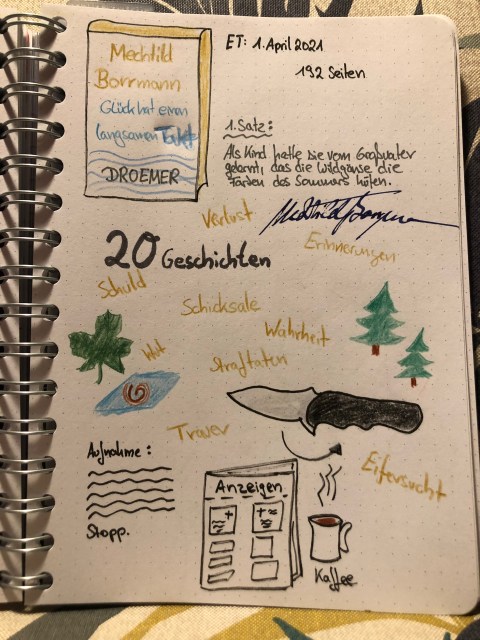 Mechtild
Borrmann
Glück hat einen
langsamen Takt
DROEMER
ET: 1. April 2021
192 Seiten
1. Satz:
Als Kind hatte sie vom Großvater
gelernt, das die Wildgänse die
Farben des Sommers holten.
Mechtild Borrmann
Verlust
Erinnerungen
20 Geschichten
Schuld
Schicksale
Wahrheit
Wut
Straftaten
Trauer
Eifersucht
Aufnahme:
Stopp.
Anzeigen
Kaffee